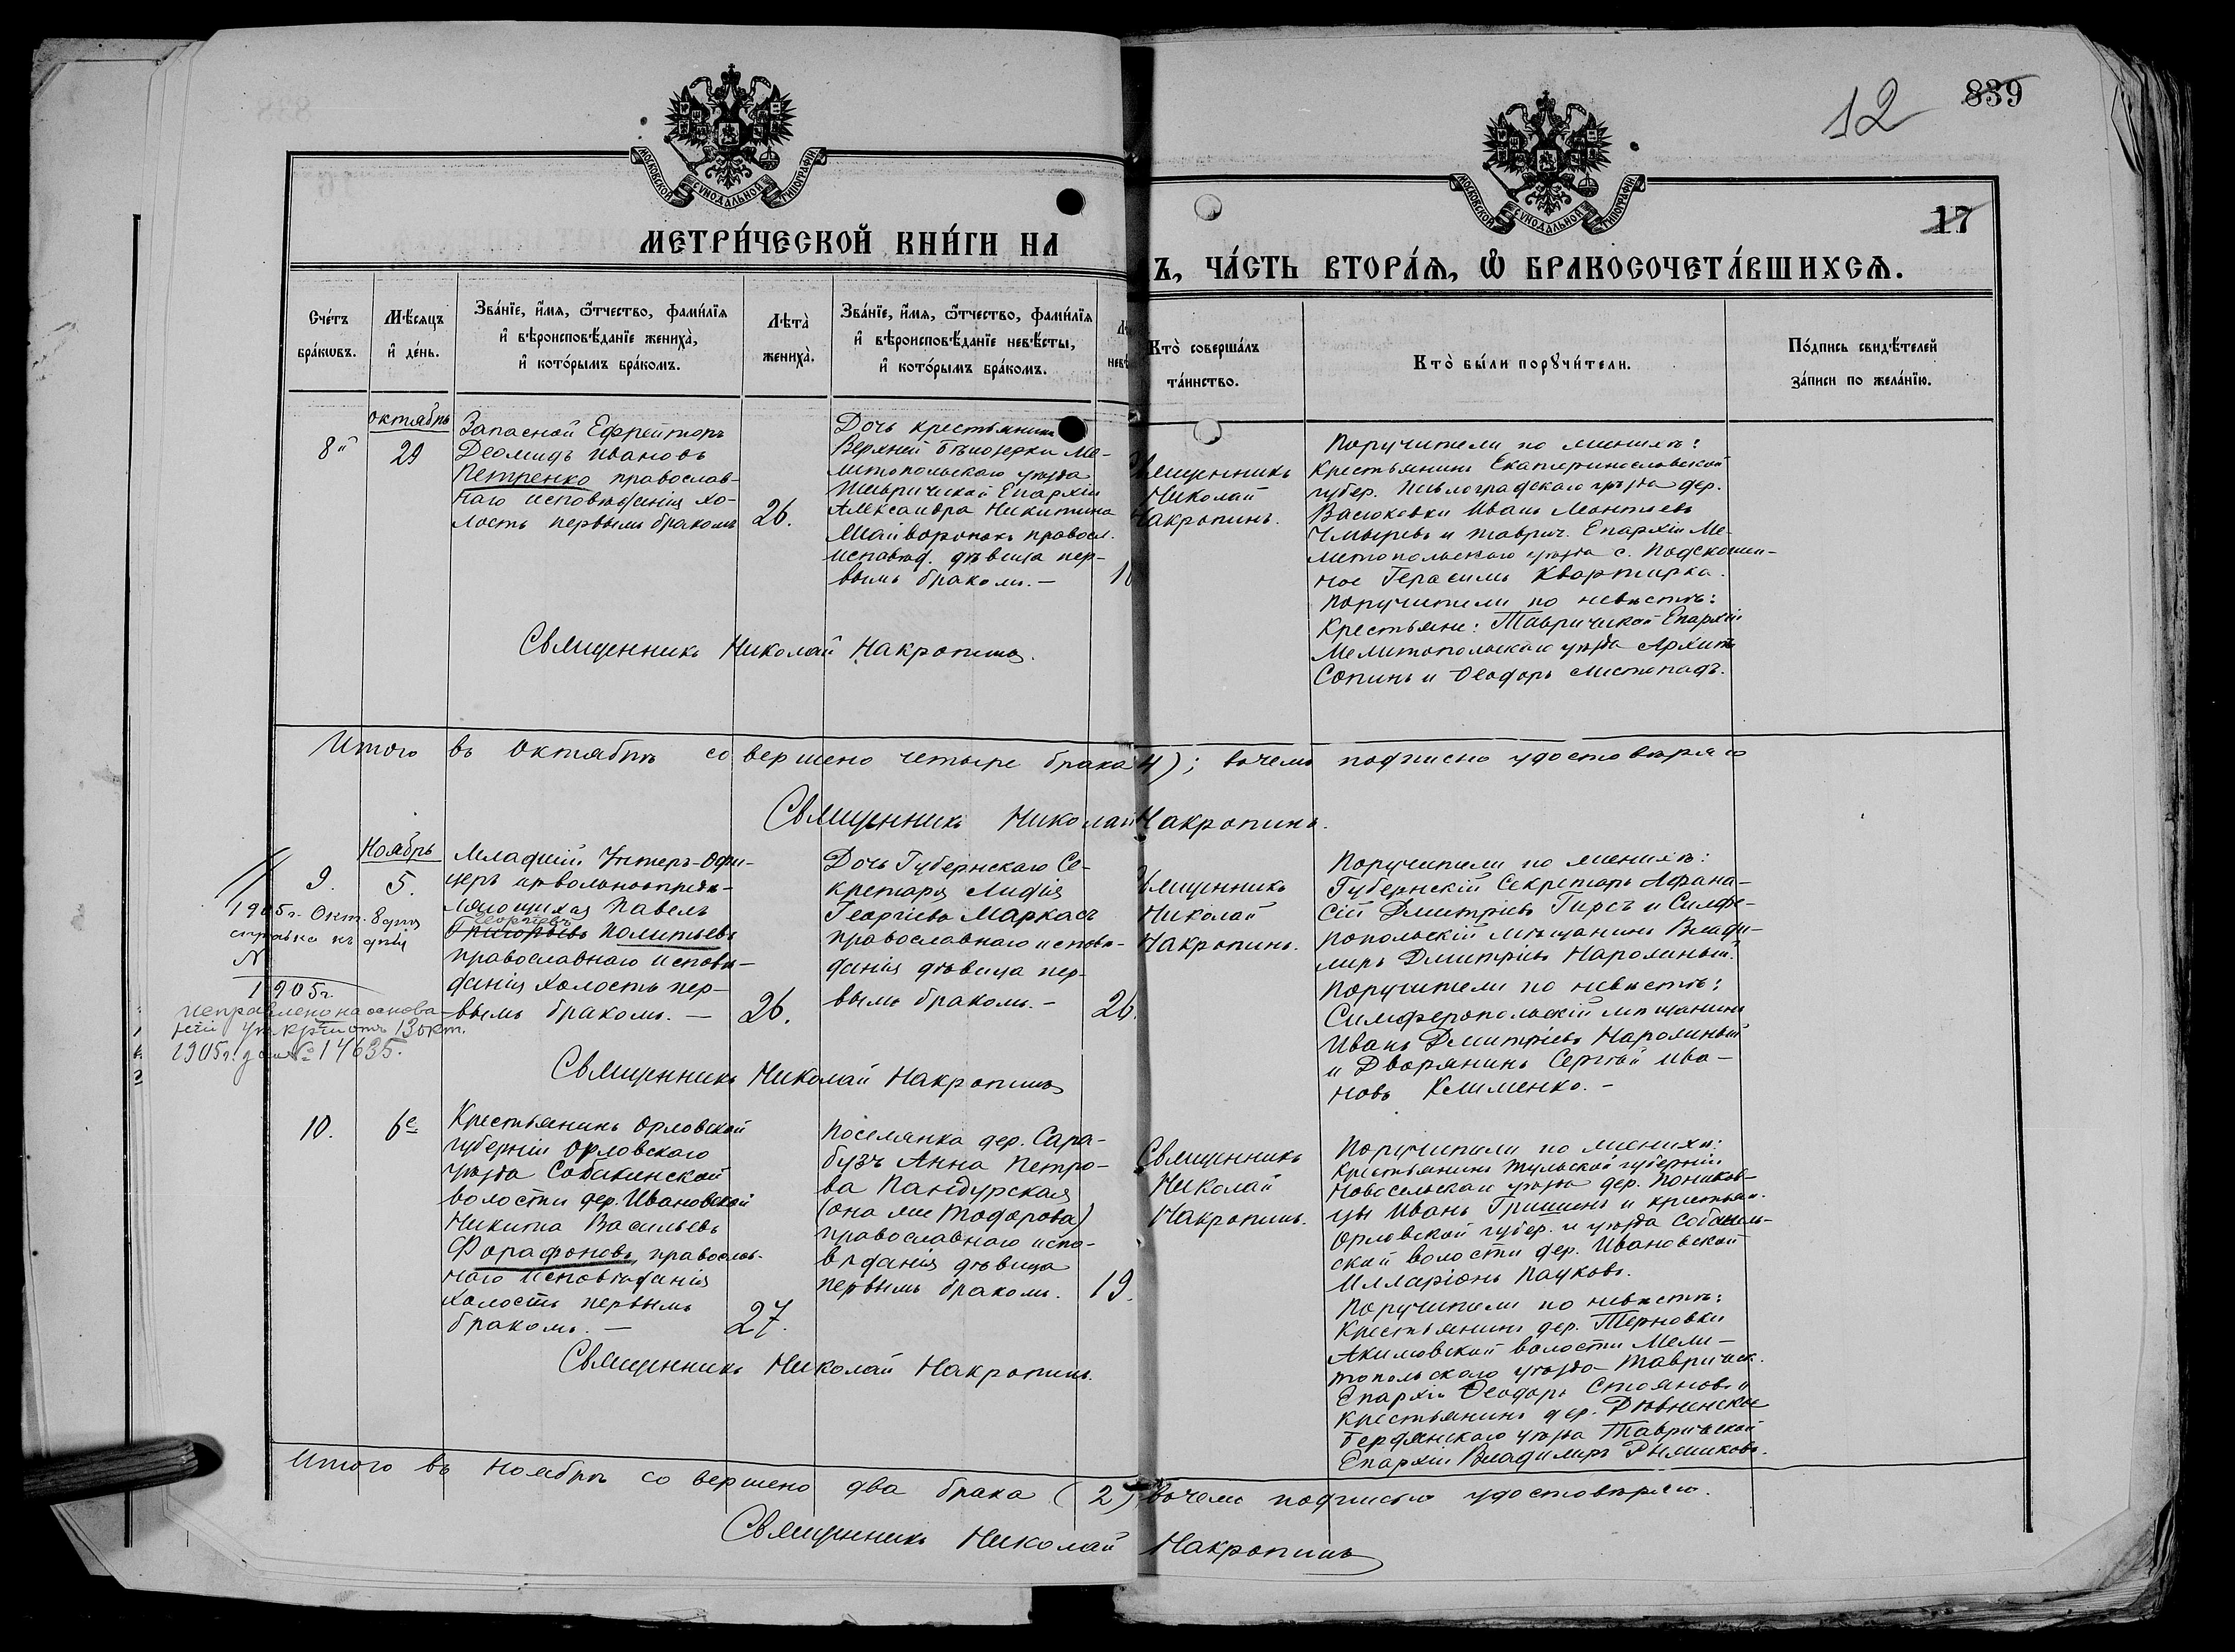 12
839
МОСКОВСКОЙ СУНОДАЛЬНОЙ ТИПОГРАФІИ
МОСКОВСКОЙ СУНОДАЛЬНОЙ ТИПОГРАФІИ
17
МЕТРИ́ЧЕСКОЙ КНИ́ГИ НА
Ъ, ЧА́СТЬ ВТОРА́Ѧ, Ѿ БРАКОСОЧЕТА́ВШИХСѦ.
Сче́тъ
бра́кѡвъ.
Мѣ́сѧцъ
и҆ де́нь.
Зва́нїе, и҆́мѧ, ѻ҆́тчество, фами́лїѧ
и҆ вѣроисповѣ́данїе жениха̀,
и҆ кото́рымъ бра́комъ.
Лѣта̀
жениха̀.
Зва́нїе, и҆́мѧ, ѻ҆́тчество, фами́лїѧ
и҆ вѣроисповѣ́данїе невѣ́сты,
и҆ кото́рымъ бра́комъ.
Кто̀ соверша́лъ
та́инство.
Кто̀ бы́ли порꙋчи́тели.
По́дпись свидѣ́телей
за́писи по жела́нїю.
8й
октябрь
29
Запасной Ефрейторъ
Деомидъ Ивановъ
Петренко православ-
наго исповѣданія хо-
лостъ первымъ бракомъ
26.
Дочь крестьянина
Верхней Бѣлозерки Ме-
литопольскаго уѣзда
Таврической Епархіи
Александра Никитина
Майворонокъ правосл.
исповѣд. дѣвица пер-
вымъ бракомъ. —
Священникъ
Николай
Накропинъ.
Поручители по женихѣ:
крестьянинъ Екатеринославской
губер. Павлоградскаго уѣзда дер.
Васюковки Иванъ Леонтіевъ
Чмыревъ и Таврич. Епархіи Ме-
литопольскаго уѣзда с. Подскошен-
ное Герасимъ Квартирка.
Поручители по невѣстѣ:
Крестьяне: Таврической Епархіи
Мелитопольскаго уѣзда Архипъ
Сопинъ и Ѳеодоръ Листопадъ.
Священникъ Николай Накропинъ.
Итого въ октябрѣ совершено четыре брака 4); въ чемъ подписью удостовѣряю
Священникъ Николай Накропинъ.
9.
Ноябрь
5.
1905 г. Окт. 8 дня
справка къ дѣлу
№
1905 г.
Исправлено на основа-
ніи ук. кр. отъ 13 окт.
1905 г. за № 14635.
Младшій Унтеръ-Офи-
церъ изъ вольноопредѣ-
ляющихся Павелъ
Георгіевъ
Григорьевъ Политьевъ
православнаго исповѣ-
данія холостъ пер-
вымъ бракомъ. —
26.
Дочь Губернскаго Се-
кретаря Лидія
Георгіева Маркасъ
православнаго исповѣ-
данія дѣвица пер-
вымъ бракомъ. —
26.
Священникъ
Николай
Накропинъ.
Поручители по женихѣ:
Губернскій Секретарь Афана-
сій Дмитріевъ Гирсъ и Симфе-
ропольскій мѣщанинъ Влади-
миръ Дмитріевъ Нарожный.
Поручители по невѣстѣ:
Симферопольскій мѣщанинъ
Иванъ Дмитріевъ Нарожный
и Дворянинъ Сергѣй Ива-
новъ Клименко. —
Священникъ Николай Накропинъ
10.
6е
Крестьянинъ Орловской
губерніи Орловскаго
уѣзда Собакинской
волости дер. Ивановской
Никита Васильевъ
Форафоновъ, православ-
наго исповѣданія
холостъ первымъ
бракомъ. —
27.
Поселянка дер. Сара-
бузъ Анна Петро-
ва Пандурская
(она же Тодорова)
православнаго испо-
вѣданія дѣвица
первымъ бракомъ.
19.
Священникъ
Николай
Накропинъ.
Поручители по женихѣ:
крестьянинъ Тульской губерніи
Новосельскаго уѣзда дер. Поников-
цы Иванъ Гришинъ и крестьян.
Орловской губер. и уѣзда Собакин-
ской волости дер. Ивановской
Илларіонъ Пауковъ.
Поручители по невѣстѣ:
Крестьянинъ дер. Терновки
Акимовской волости Мели-
топольскаго уѣзда Тавричск.
Епархіи Ѳеодоръ Стояновъ и
крестьянинъ дер. Дювненское
Бердянскаго уѣзда Таврической
Епархіи Владимиръ Рымшковъ.
Священникъ Николай Накропинъ.
Итого въ ноябрѣ совершено два брака (2) въ чемъ подписью удостовѣряю.
Священникъ Николай Накропинъ